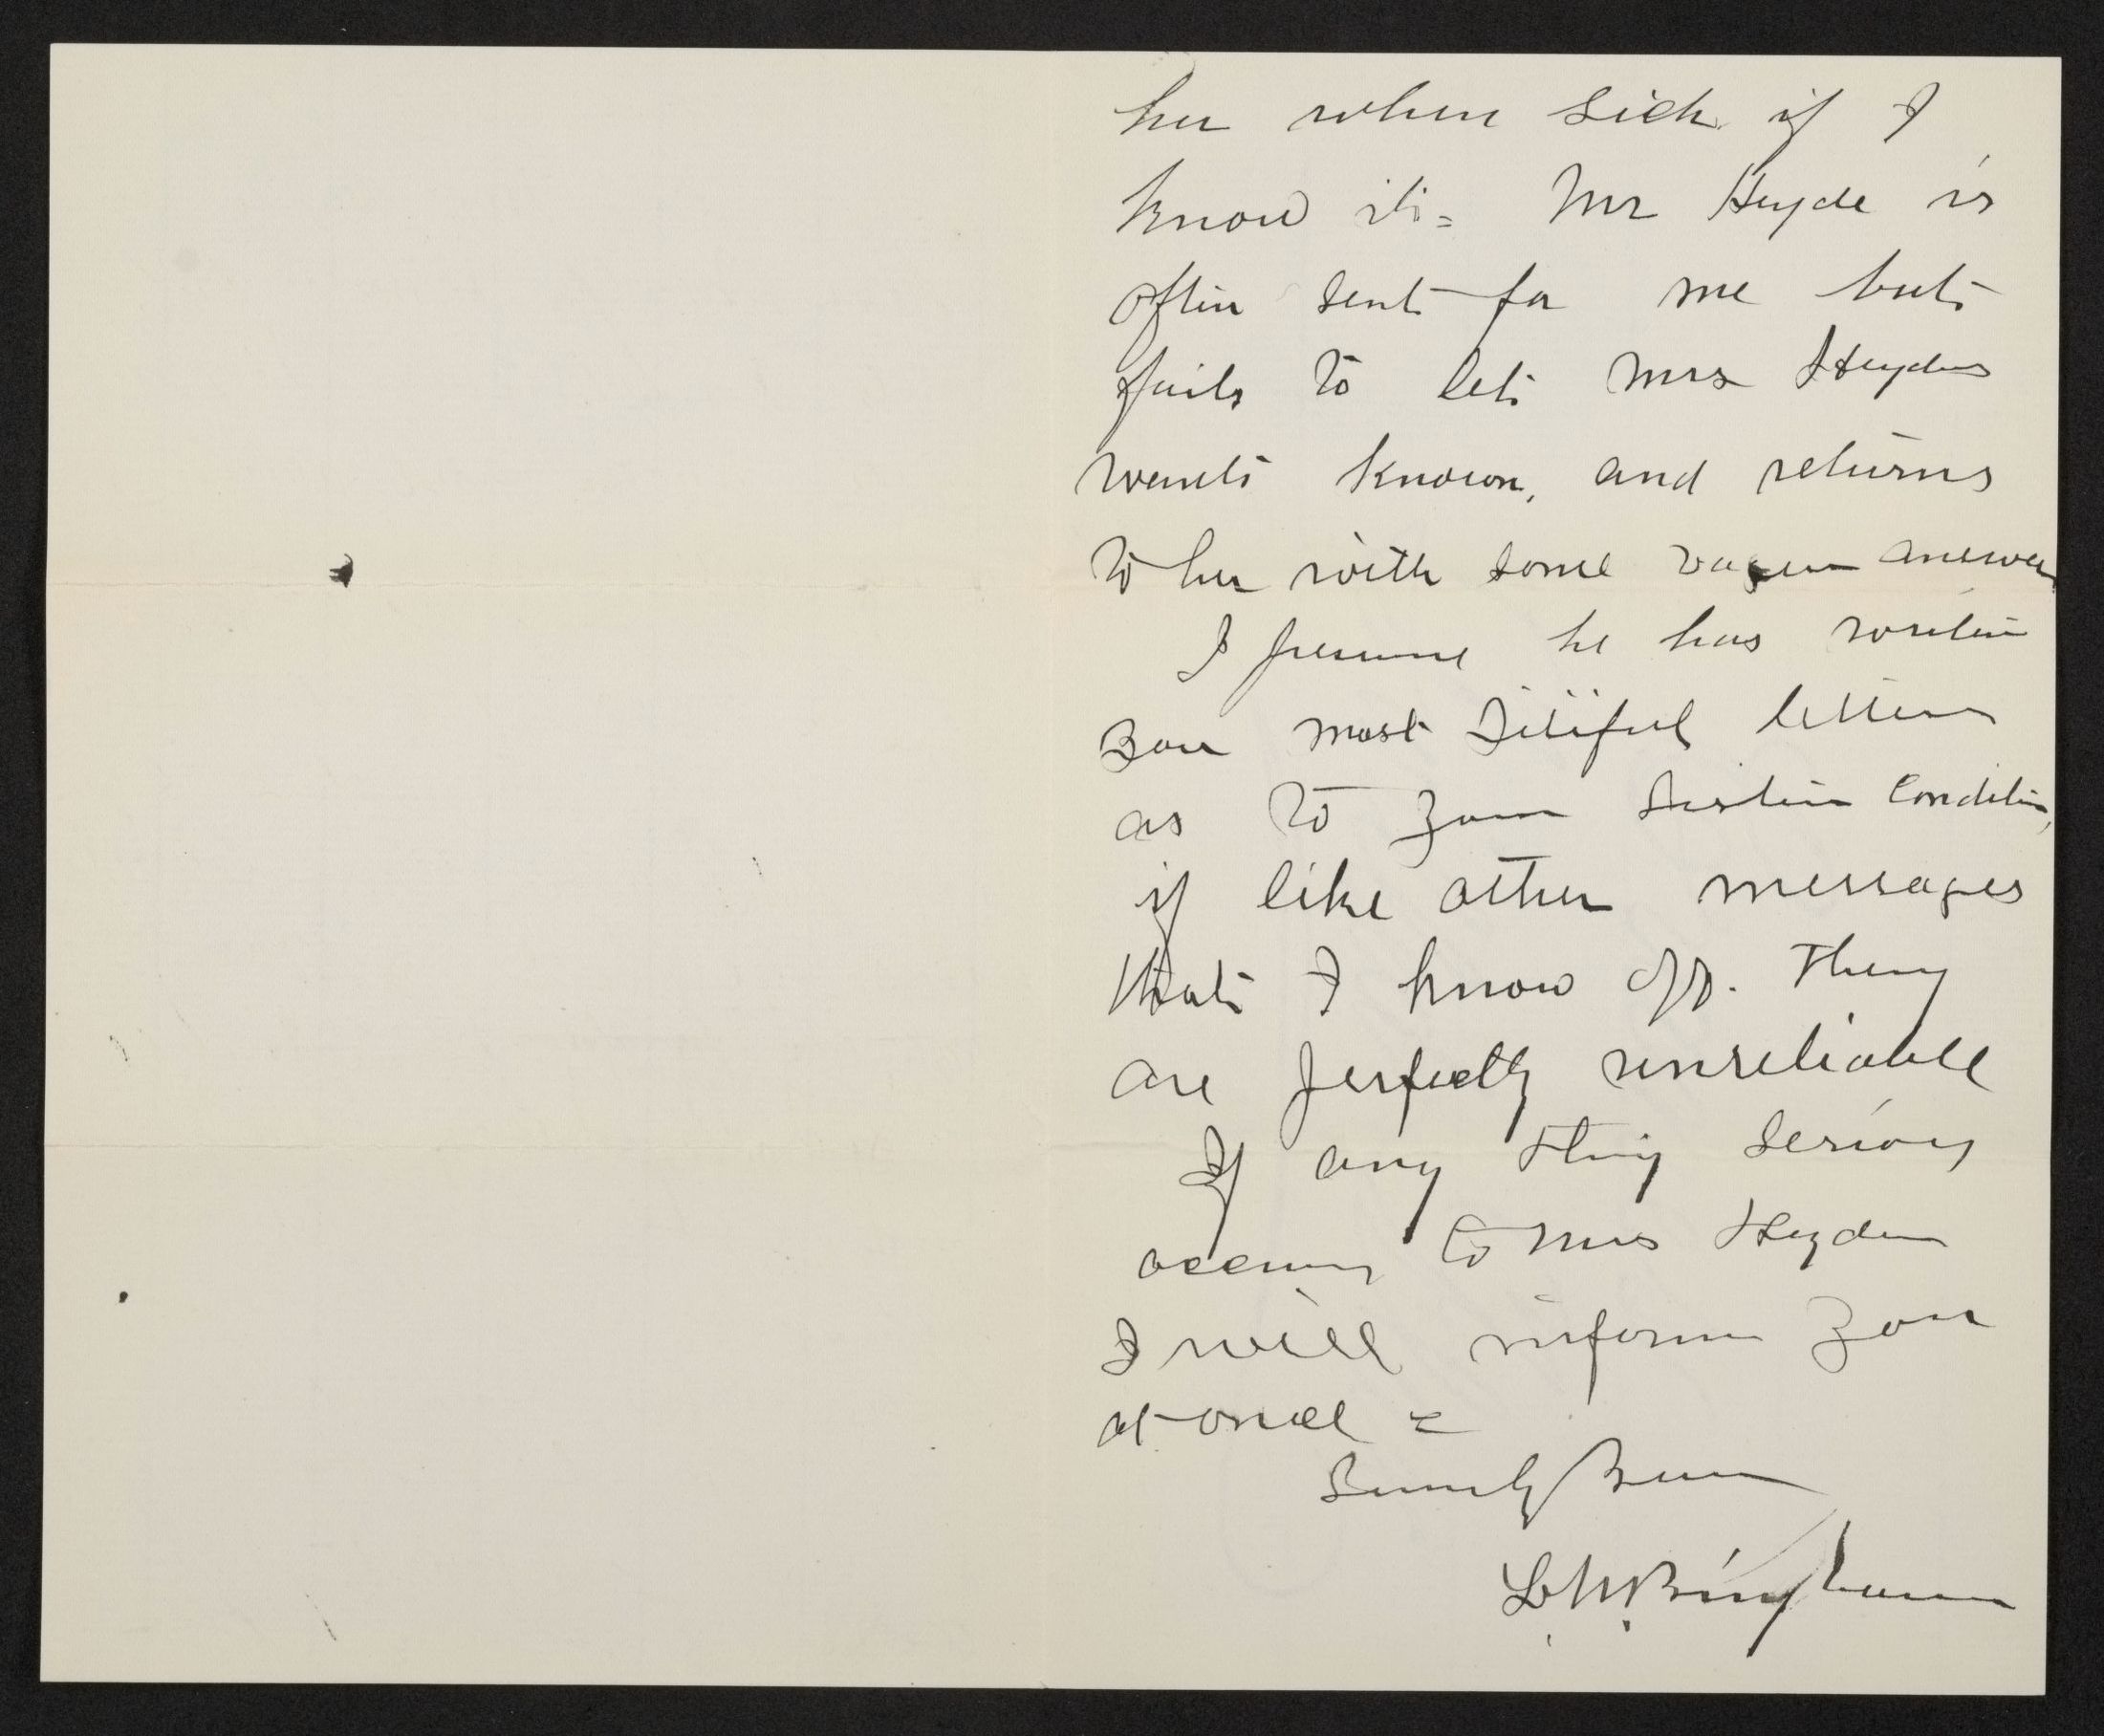 her when sick if I
know it = Mr Heyde is
often sent for me but
fails to let Mrs Heydes
wants known, and returns
to her with some vague answer
I presume he has written
you most pitiful letters
as to your sisters condition,
if like other messages
that I know off. They
are perfectly unreliable
If any thing serious
occurs to Mrs Heyde
I will inform you
at once =
Bingham